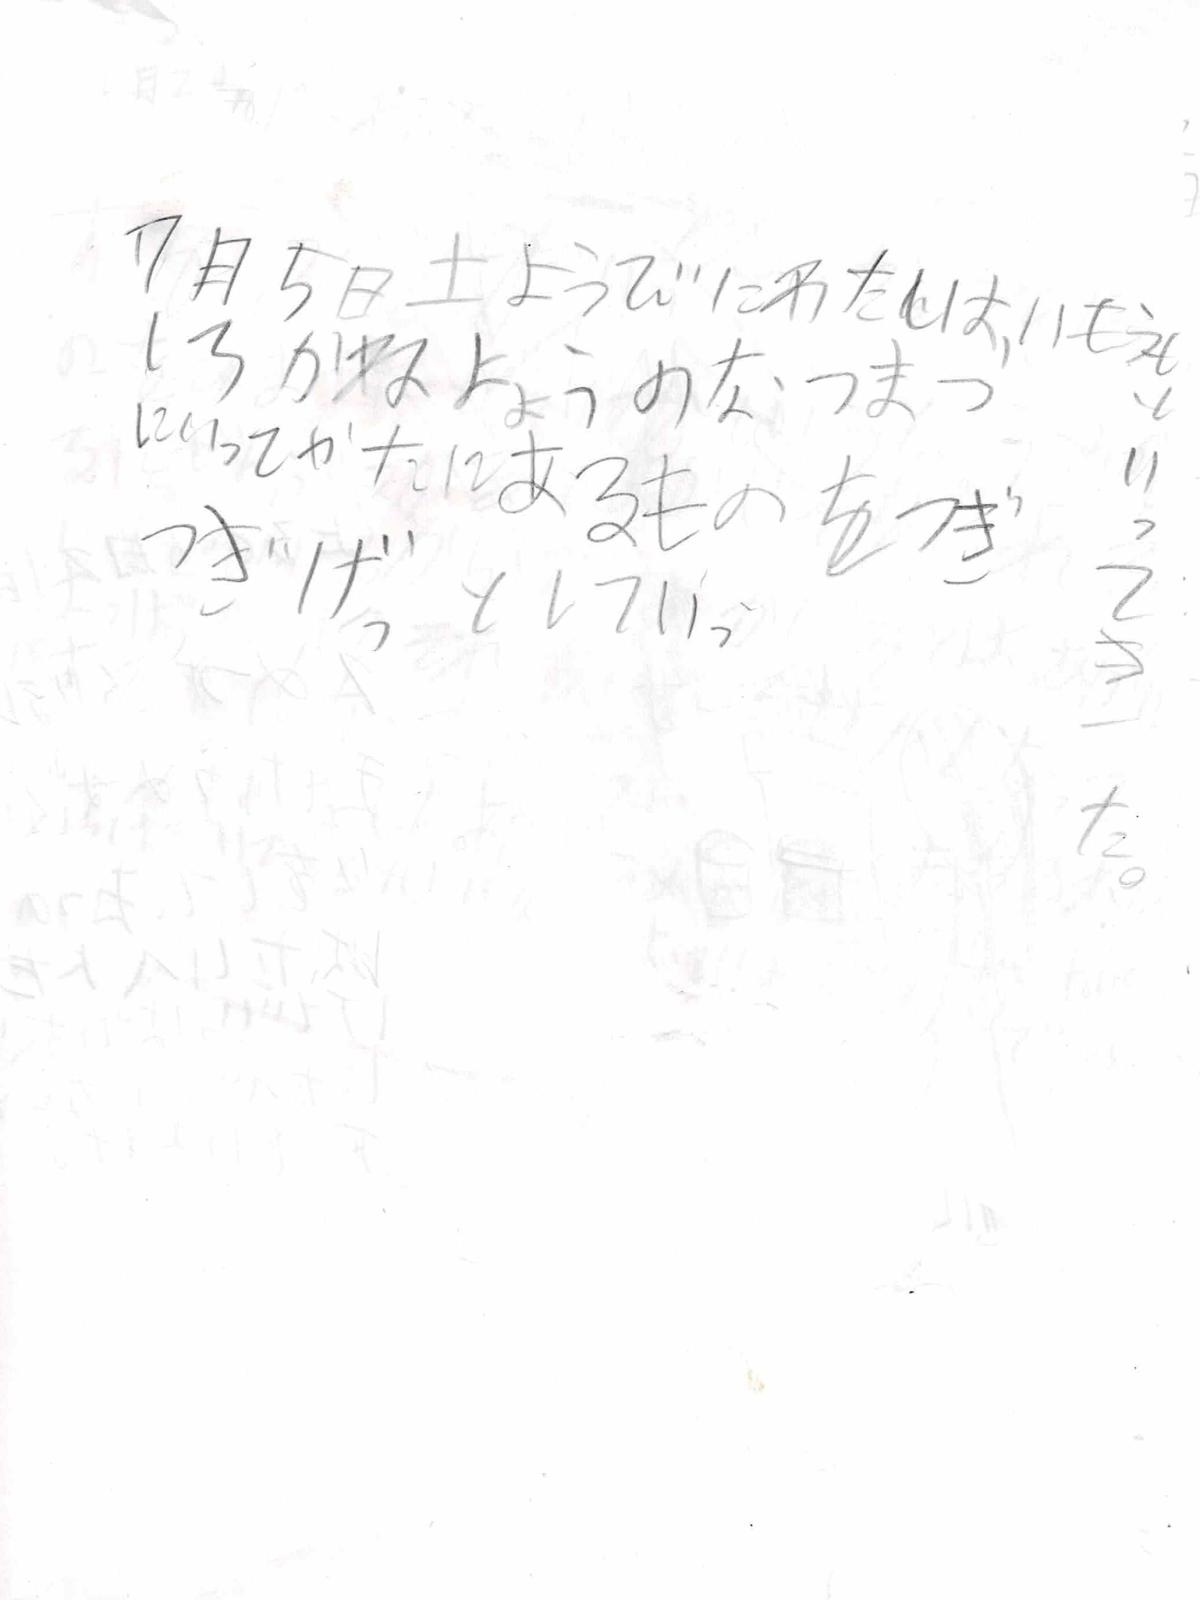 7月5日土ようびにわたしは、いもうと
しろがねようのなつまつ
にいってかたにあるものをつぎ
つぎげっとしていっ
といってきーた。